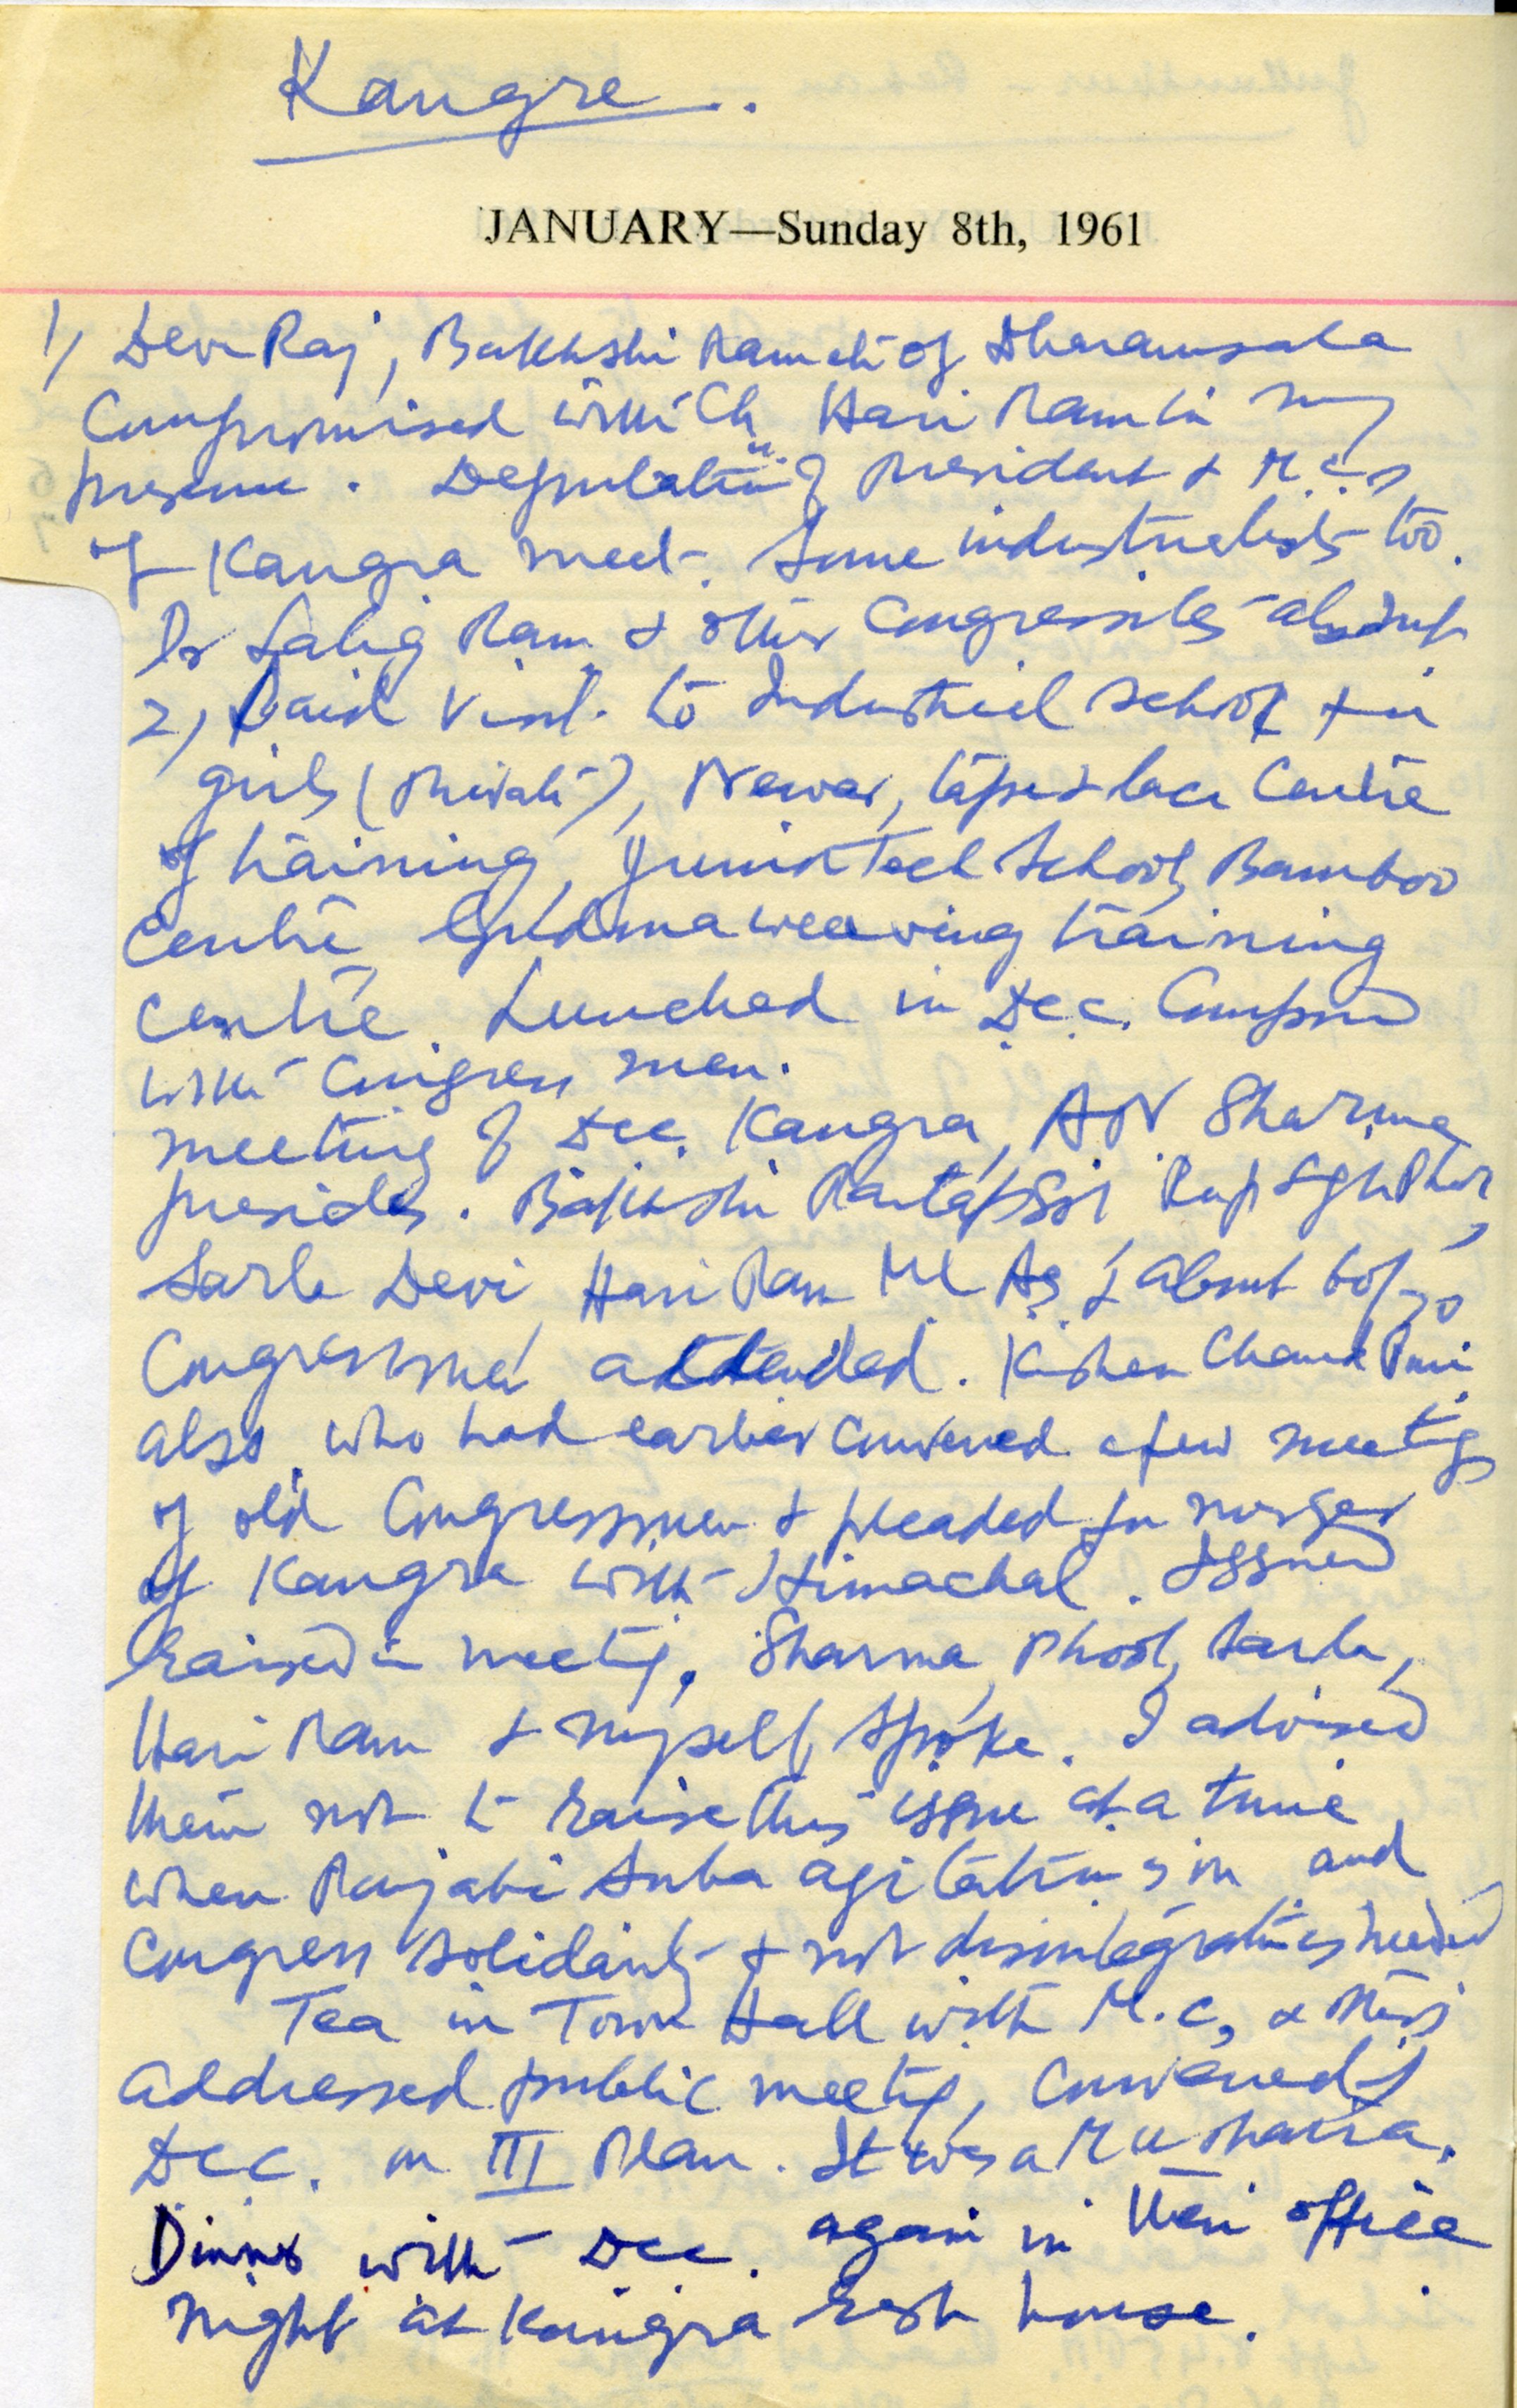 Kangra.
JANUARY—Sunday 8th, 1961
1) Dev Raj, Bakhshi Ram etc of Dharamsala
Compromised with Ch. Hari Ram in my
presence. Deputation of President & M.Cs
of Kangra meet. Some industrialists too.
Dr Salig Ram & other Congressites also
2) Paid visit to Industrial School for
girls (Private), Newar, tape & lace Centre
of training, Junior Tech School, Bamboo
Centre, Gudma weaving training
centre. Lunched in Dcc. Compound
with Congress men.
meeting of Dcc. Kangra, AN Sharma
presides. Bakhshi Partap Sgh Rup Sgh Phul,
Sarla Devi, Hari Ram MLAs & about 60/70
Congressmen attended. Kishen Chand Puri
also, who had earlier convened a few meetgs
of old Congressmen & pleaded for merger
of Kangra with Himachal. Issue
raised in meetig. Sharma, Phool, Sarla,
Hari Ram & myself spoke. I advised
them not to raise this issue at a time
when Punjabi Suba agitation is on and
Congress solidarity & not disintegration is needed
Tea in Town Hall with M.Cs & others
addressed public meetig, convened by
Dcc. on III Plan. It was a Mushaira.
Dinner with Dcc. again in their office
night at Kangra rest house.